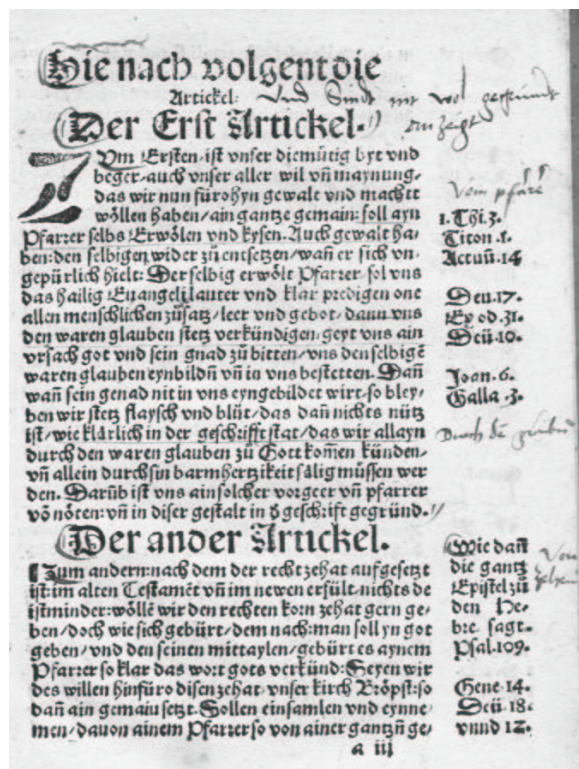 Hie nach volgent die
Artickel: Und Sindt mit wol
Der Erst Artickel.
ZVm Ersten ist vnser diemütig byt vnd
beger/auch vnser aller wil vn̄ maynung/
das wir nun fürohyn gewalt vnd machtt
wöllen haben/ain gantze gemain: soll ayn
Pfarrer selbs Erwölen vnd kysen. Auch gewalt ha/
ben: den selbigen wider zů entsetzen/wañ er sich vn/
gepürlich hielt: Der selbig erwölt Pfarrer sol vns
das hailig Euangeli lauter vnd klar predigen one
allen menschlichen zůsatz/leer vnd gebot/dann vns
den waren glauben stetz verkündigen/geyt vns ain
vrsach got vnd sein gnad zů bitten/vns den selbigē
waren glauben eynbildñ vn̄ in vns bestetten. Dañ
wañ sein genad nit in vns eyngebildet wirt/so bley/
ben wir stetz flaysch vnd blůt/das dañ nichts nütz
ist/wie klärlich in der geschrifft stat/das wir allayn
durch den waren glauben zů Gott kom̄en künden/
vn̄ allein durch sin barmhertzikeit sälig müssen wer
den. Darůb ist vns ain solcher vorgeer vn̄ pfarrer
vō nöten: vn̄ in diser gestalt in d̄ geschrift gegründ.
Vom pfare
1. Thi. 3.
Titon. 1.
Actuū. 14
Deu. 17.
Exod. 31.
Deū. 10.
Joan. 6.
Galla. 3.
Durch dē glaubē
Der ander Artickel.
Zum andern: nach dem der recht zehat aufgesetzt
ist: im alten Testamēt vn̄ im newen erfült: nichts de
ist minder: wöllē wir den rechten korn zehat gern ge/
ben/doch wie sich gebürt/dem nach: man soll yn got
geben/vnd den seinen mittaylen/gebürt es aynem
Pfarrer so klar das wort gots verkünd: Seyen wir
des willen hinfüro disen zehat vnser kirch Bröpst: so
dañ ain gemain setzt. Sollen einsamlen vnd eynne/
men/dauon ainem Pfarrer so von ainer gantzñ ge/
Wie dañ
die gantz
Epistel zů
den He/
bre. sagt.
Psal. 109.
Gene. 14.
Deū. 18.
vnnd 12.
a iij